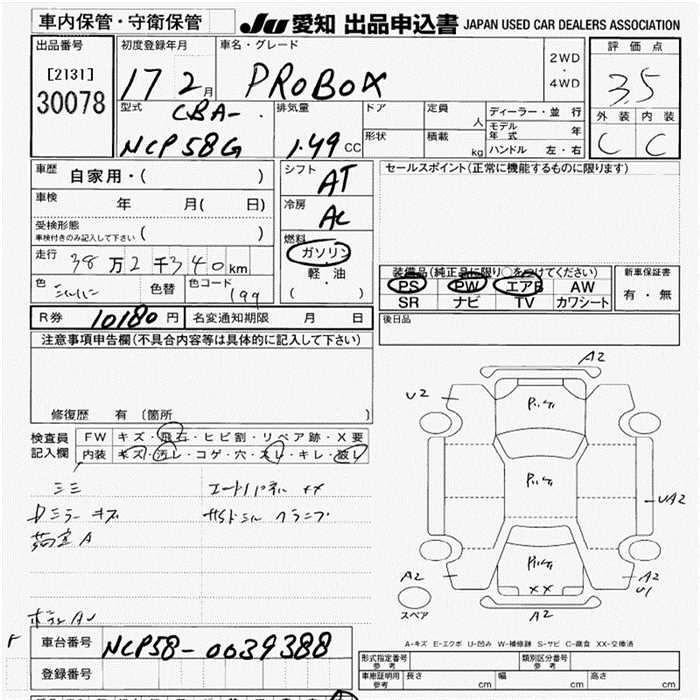 車内保管・守衛保管 JU 愛知 出品申込書 JAPAN USED CAR DEALERS ASSOCIATION
出品番号 初度登録年月 車名・グレード 2WD・4WD 評価点
[2131] 30078 17 2月 PROBOX 3.5
型式 CBA- 排気量 ドア 定員 人 ディーラー・並行 外装 内装
NCP58G 1.49 CC 形状 積載 kg モデル年式 年 ハンドル 左・右 C C
車歴 自家用・( ) シフト AT セールスポイント(正常に機能するものに限ります)
車検 年 月( 日) 冷房 AC
受検形態 車検付きのみ記入して下さい ( ) 燃料
走行 38万2千340km ガソリン 装備品(純正品に限り○をつけてください) 新車保証書
色 色替 色コード 199 軽・油 ( ) PS PW エアB AW 有・無
SR ナビ TV カワシート
R券 10180円 名変通知期限 月 日 後日品
注意事項申告欄(不具合内容等は具体的に記入して下さい)
修復歴 有〔箇所 〕
検査員記入欄 FW キズ・飛石・ヒビ割・リペア跡・X要
内装 キズ・汚レ・コゲ・穴・スレ・キレ・破レ
A2
U2
Dミラー キズ
UA2
A2
A2 U1
スペア
XX
A2
A-キズ E-エクボ U-凹み W-補修跡 S-サビ C-腐食 XX-交換済
F 車台番号 NCP58-0039388
登録番号
形式指定番号 参考 類別区分番号 参考
車庫証明用 参考 長さ cm 幅 cm 高さ cm